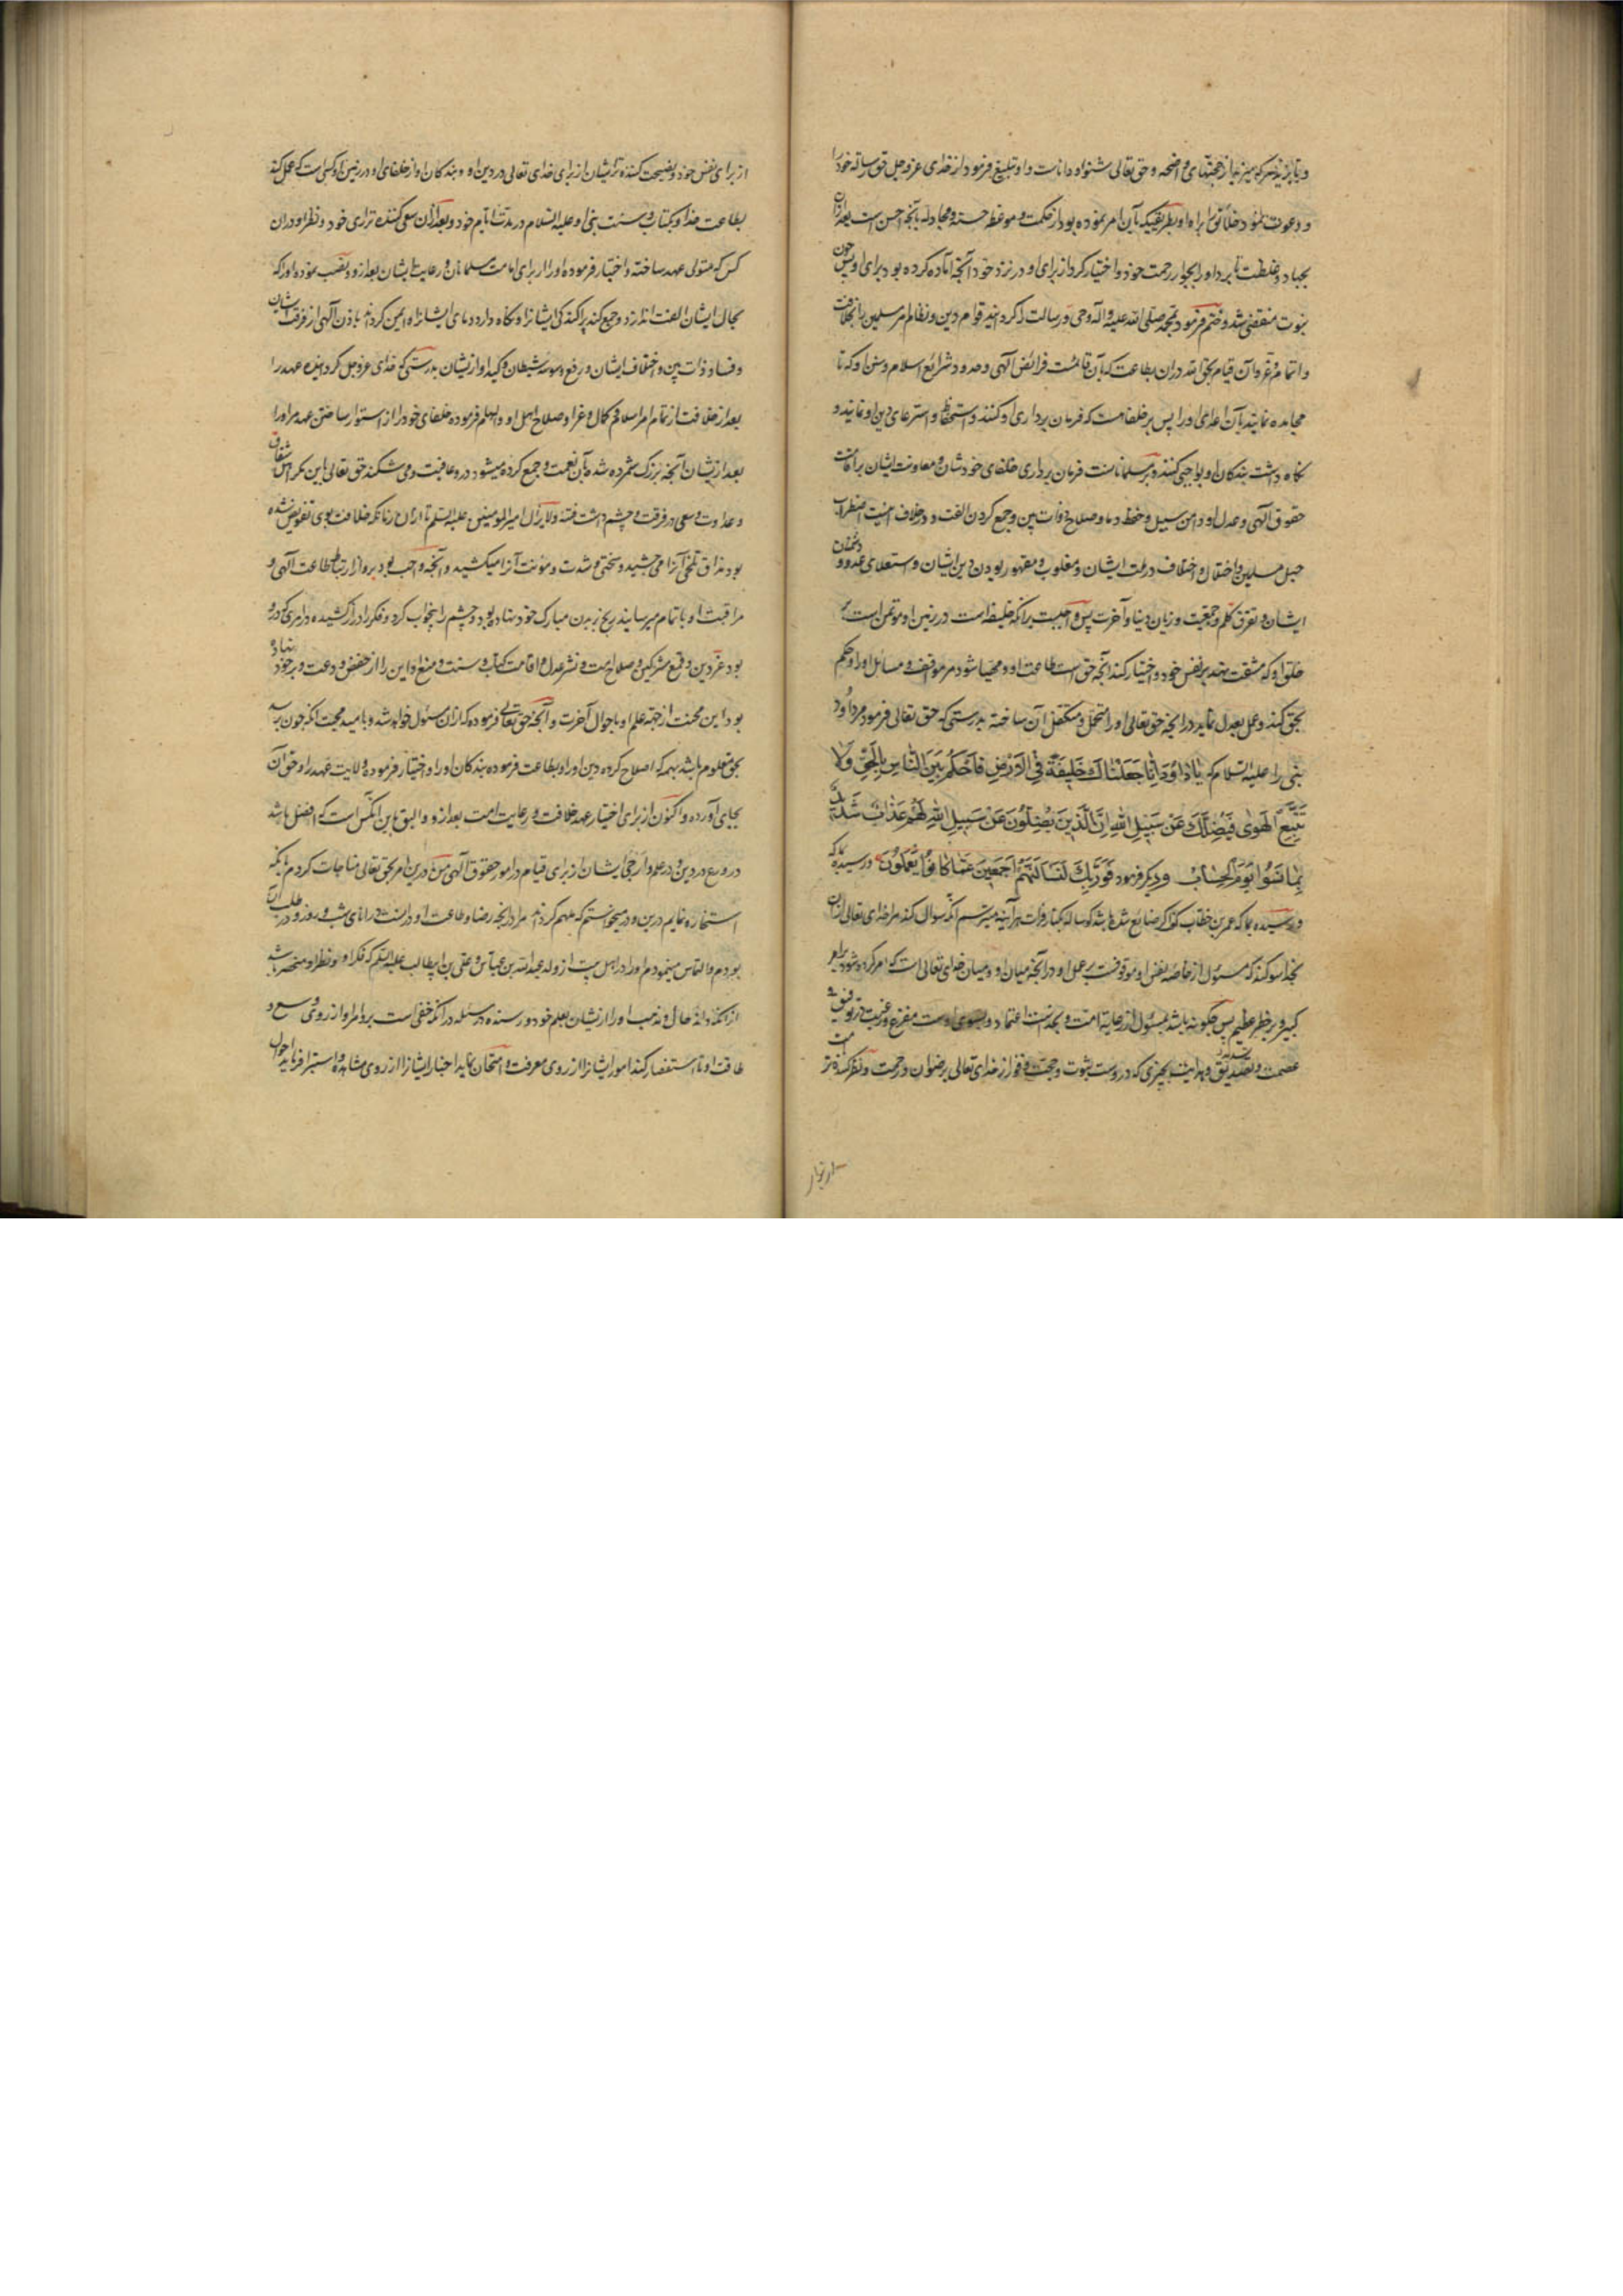 و دعوت نمود خلائق را براه او بطریقیکه بآن امر نموده بود از حکمت و موعظه حسنه و مجادله بآنچه احسن است بعد ازان
بجهاد و غلظت تا برد او را بجوار رحمت خود و اختیار کرد از برای او در نزد خود آنچه آماده کرده بود برای او پس چون
نبوت منقضی شد و ختم فرمود بمحمد صلی الله علیه و آله وحی و رسالت را کردانید قوام دین و نظام امر مسلمین را بخلافت
و اتمام و عز و آن قیام بحق الله دران بطاعت که بآن قائمست فرائض الهی و حدود و شرائع اسلام و سنن او که تا
مجاهده نمایند بآن اعدای او را پس بر خلفاست که فرمان برداری او کنند و استحفاظ و استرعای دین او نمایند و
نکاه داشت بندکان او بواجبی کنند و بر مسلمانانست فرمان برداری خلفای خودشان و معاونت ایشان بر اقامت
حقوق الهی و عدل او و امن سبیل و حفظ دما و صلاح ذوات بین و جمع کردن الفت و در خلاف اینست اضطراب
حبل مسلمین و اختلال و اختلاف در ملت ایشان و مغلوب و مقهور بودن دین ایشان و استعلای عدو و دشمنان
ایشان و تفرق کلمه و جمعیت و زیان دنیا و آخرت پس واجبست بر آنکه خلیفه است در زمین او و مؤتمن است بر
خلق او که مشقت نهد بر نفس خود و اختیار کند آنچه حق است طاعت او و مهیا شود مر موافقف و مسائل او را و حکم
بحق کند و عمل بعدل نماید در آنچه حق تعالی او را متحمل و متکفل آن ساخته بدرستی که حق تعالی فرمود مر داود
نبی را علیه السلام که یا داود انا جعلناک خلیفة فی الارض فاحکم بین الناس بالحق ولا
تتبع الهوی فیضلک عن سبیل الله ان الذین یضلون عن سبیل الله لهم عذاب شدید
بما نسوا یوم الحساب و دیکر فرمود فوربک لنسألنهم اجمعین عما کانوا یعملون
و رسیده بما که عمر بن خطاب گفت که اگر ضایع شده باشد کوساله بکنار فرات هر آینه میترسم آنکه سوال کند مرا خدای تعالی ازان
بخدا سوکند که مسئول از خاصه نفس او موقوفست بر عمل او در آنچه میان او و میان خدای تعالی است
کبیر و بر خطر عظیم پس چگونه باشد مسئول از رعایت امت و بخداست اعتماد و بسوی اوست مفزع و رغبت در توفیق
از برای نفس خود و نصیحت کننده‌تر ایشان از برای خدای تعالی در دین او و بندکان او از خلفای او در زمین او کسی است که عمل کند
بطاعت خدا و کتاب و سنت نبی او علیه السلام در مدت ایام خود و بعد ازان سعی کننده تر رای خود و نظر او دران
کس که متولی عهد ساخته و اختیار فرموده او را از برای امامت مسلمانان و رعایت ایشان بعد از و و نصب نموده او را که
بحال ایشان الفت اندازد و جمع کند پراکندکی ایشانرا و نکاه دارد دمای ایشانرا و ایمن کرداند باذن الهی از فرقت ایشان
و فساد ذات بین و اختلاف ایشان و رفع وسوسه شیطان و کید او از یشان بدرستی که خدای عز و جل کردانیده عهد را
بعد از خلافت از تمام امر اسلام و کمال و عز او صلاح اهل او و الهام فرموده خلفای خود را از استوار ساختن عهد مر او را
و عداوت و سعی در فرقت و چشم داشت فتنه و لا یزال امیر المومنین علیه السلم تا ازان زمانکه خلافت بوی تفویض شده
بود مذاق تلخی آنرا می چشید و سختی و شدت و مؤنت آنرا میکشید و آنچه واجب بود برو از ارتباط طاعت الهی و
مراقبت او باتمام میرسانید رنج بر بدن مبارک خود نهاده بود و چشم را بیخواب کرد و فکر را دراز کشیده در امری که درو
بود عز دین و قمع مشرکین و صلاح امت و نشر عدل و اقامت کتاب و سنت و منع او این را از خفض و دعت و بر خود نهاده
بود این محنت از جهة علم او باحوال آخرت و آنچه حق تعالی فرموده که ازان مسئول خواهد شد و بامید محبت آنکه چون برسد
بحق معلوم باشد بهمه که اصلاح کرده دین او را و بطاعت فرموده بندکان او را و اختیار فرموده ولایت عهد را و حق آن
بجای آورده و اکنون از برای اختیار عهد خلافت و رعایت امت بعد از و و الیق باین آنکس است که افضل باشد
در ورع در دین و در علم و ارجی ایشان از برای قیام در امور حقوق الهی من درین امر بحق تعالی مناجات کردم بآنکه
استخاره نمایم درین و در میخواستم که ملهم کرداند مرا در آنچه رضا و طاعت او دران است در انای شب و روز و در طلب آن
بودم و التماس مینمودم او را در اهل بیت از ولد عبد الله بن عباس و علی بن ابیطالب علیه السلم که فکر او و نظر او منحصر باشد
از آنکه داند حال و مذهب او را از یشان بعلم خود و رسنده در مسئله در آنکه خفی است برو امر او از روی وسع و
طاقت او تا استقصار کند امور ایشانرا از روی معرفت و امتحان نماید اخبار ایشانرا از روی مشاهده و استبرا فرماید احوال